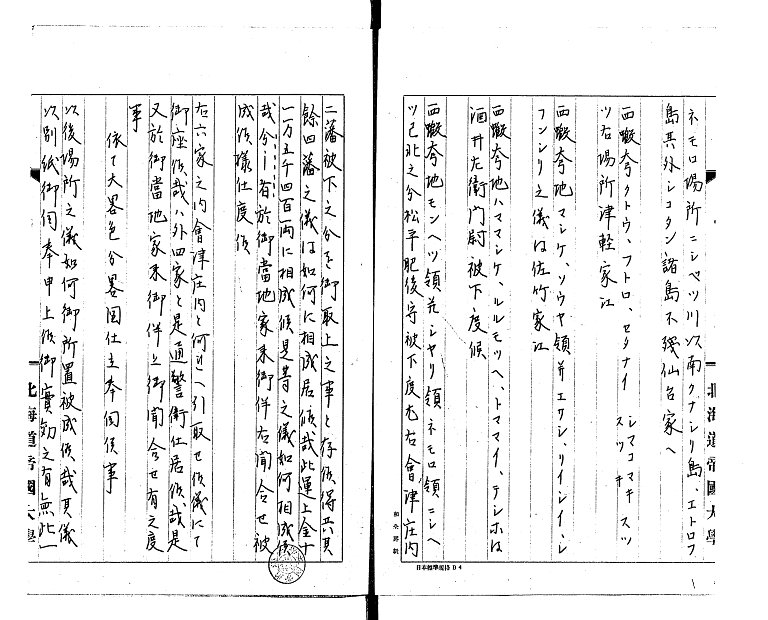 ネモロ場所ニシベツ川ゟ南クナシリ島、エトロフ
島其外シコタン諸島不残仙台家へ
西蝦夷クトウ、フトロ、セタナイ シマコマキ スツ
ツ右場所津軽家江 スツキ
西蝦夷地マシケ、ソウヤ領并エサシ、リイシイ、レ
フンシリ之儀は佐竹家江
西蝦夷地ハママシケ、ルルモツヘ、トママイ、テシホは
酒井左衛門尉被下度候
西蝦夷地モンヘツ領并シヤリ領、ネモロ領ニシへ
ツ已北之分松平肥後守被下度尤右會津庄内
北海道帝國大學
日本標準規格B4
二藩被下之分を御取上之事と存候得共其
餘四藩之儀は如何に相成居候哉此運上金十
一万五千四百両に相成候是昔之儀如何相成候
哉分一者於御當地家来御伴右聞合せ被
成候様仕度候
右六家之内會津庄内と何れへ引取せ候儀にて
御座候哉ハ外四家と是通警衛仕居候哉是
又於御當地家来御伴と御聞合せ有之度
事
依て大畧色分畧図仕立奉伺候事
以後場所之儀如何御所置被成候哉其儀
以別紙御伺奉申上候御實効之有無此一
北海道帝國大學